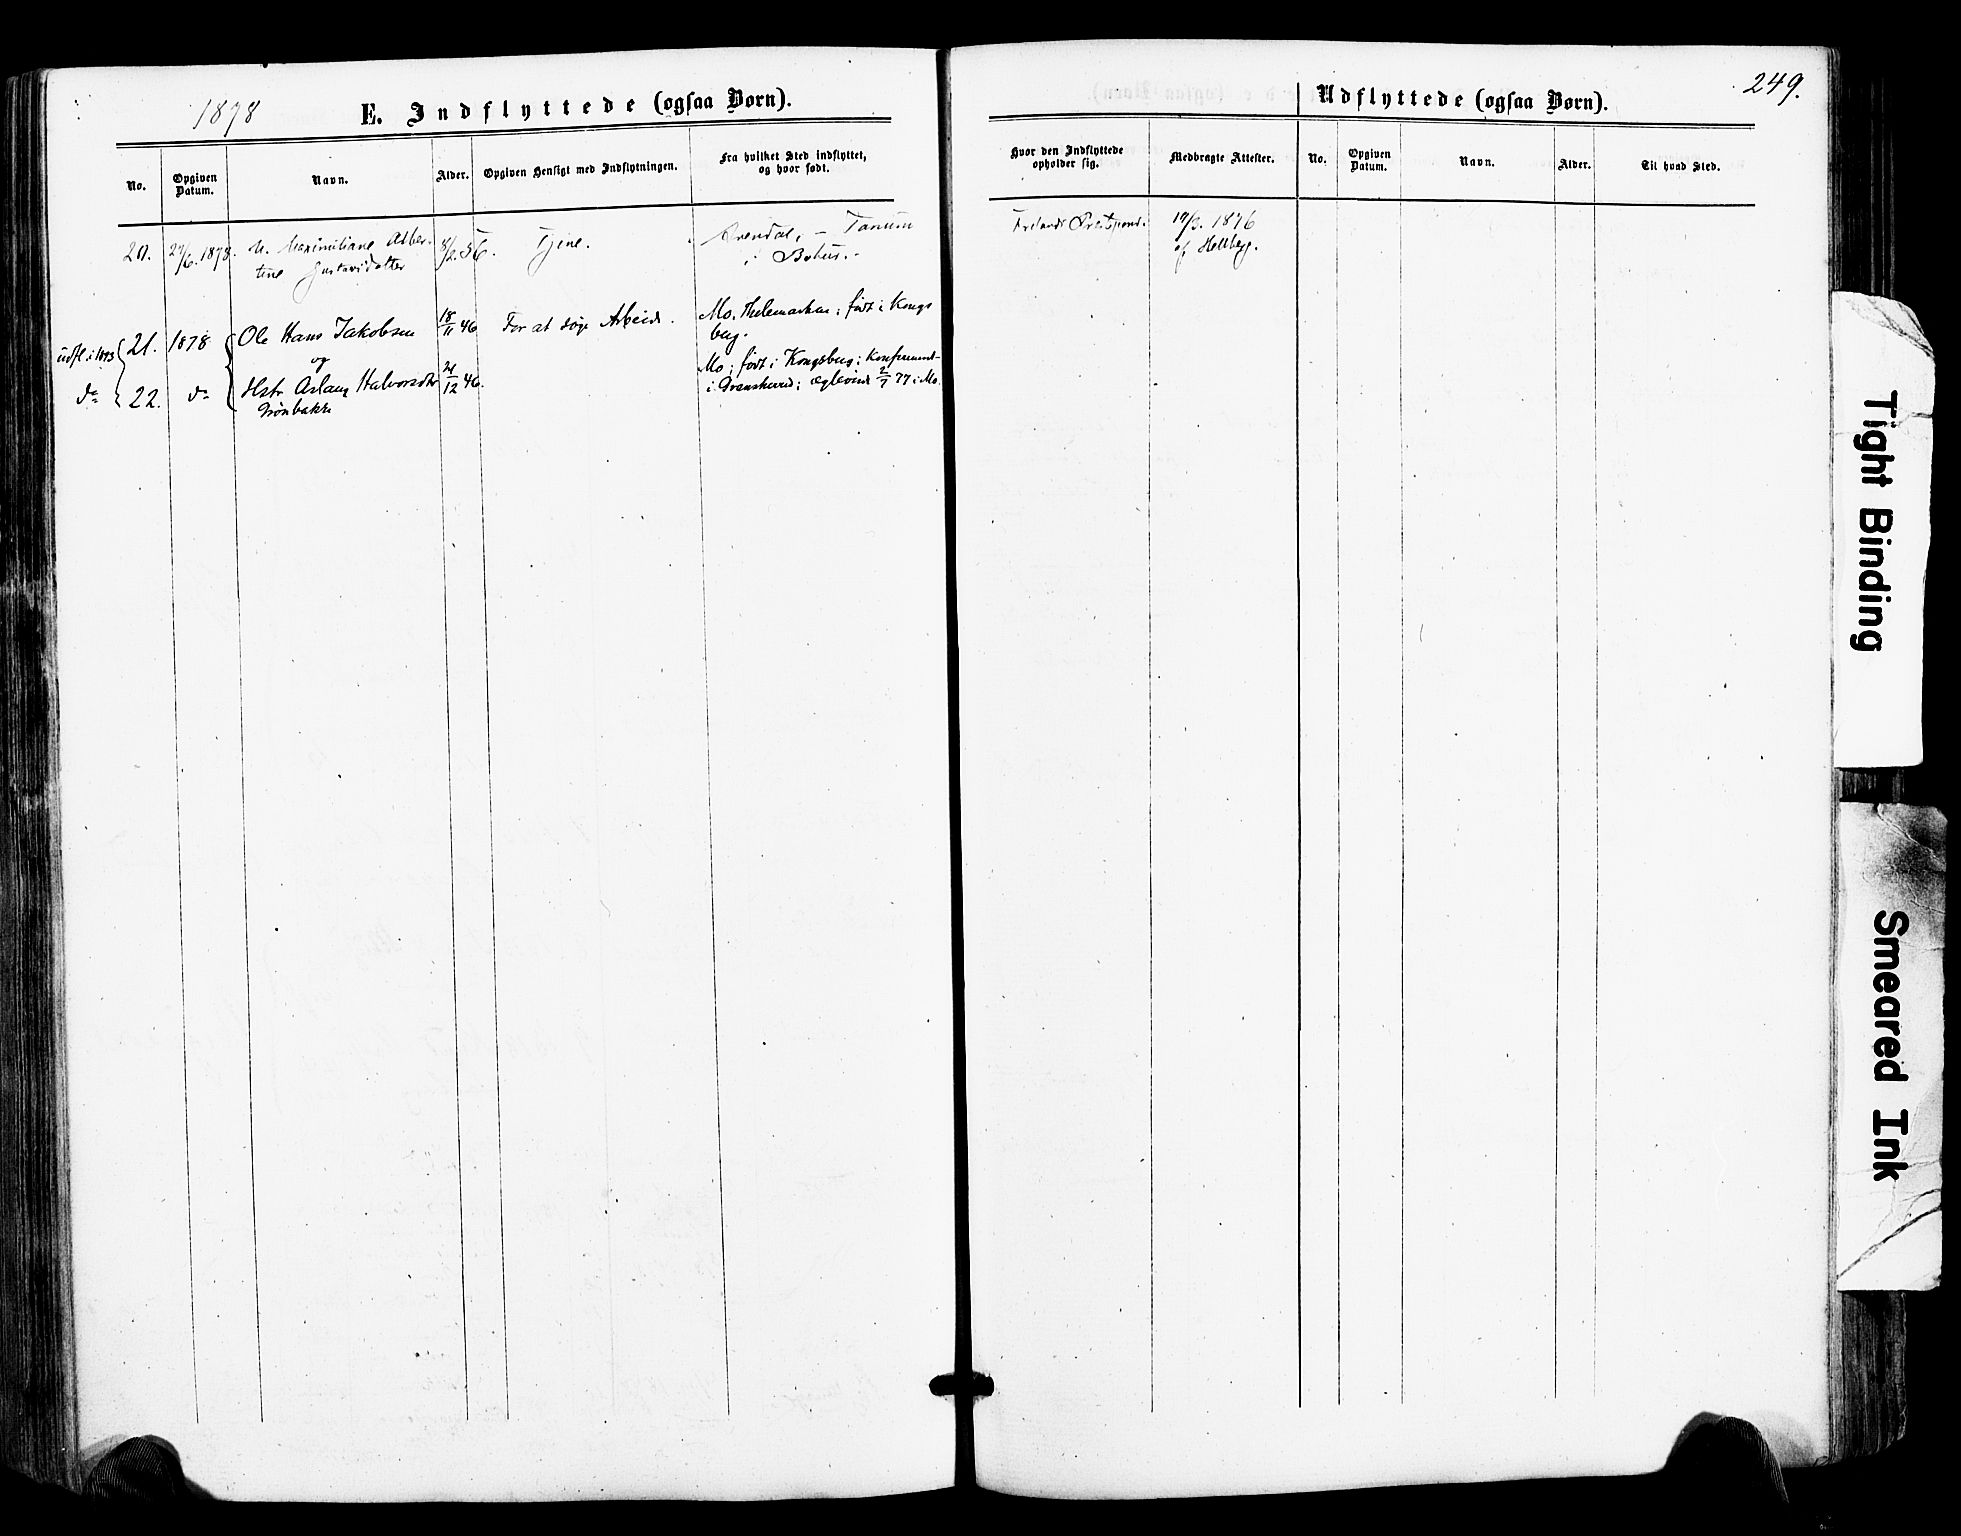 1878
E. Indflyttede (ogsaa Børn).
No.
Opgiven Datum.
Navn.
Alder.
Opgiven Hensigt med Indflytningen.
Fra hvilket Sted indflyttet,
og hvor født.
20. 27/6. 1878. Maximiliane Alber-
tine Gustavsdatter
8/2. 56.
Tjene.
Arendal, – Tanum
i Bohus. –
udfl. i 1893 21. 1878 Ole Hans Jakobsen
18/11 46
For at søge Arbeide.
Mo, Thelemarken; født i Kongs
berg.
og
do 22. do Hstr Aslaug Halvorsdtr
Grønbakke
24/12 46.
Mo; født i Kongsberg; Konfirmeret
i ægteviet 2/7 77 i Mo.
249.
Udflyttede (ogsaa Børn).
Hvor den Indflyttede
opholder sig.
Medbragte Attester.
No.
Opgiven
Datum.
Navn.
Alder.
Til hvad Sted.
19/3. 1876
af Hellberg.
Tight Binding
Smeared Ink